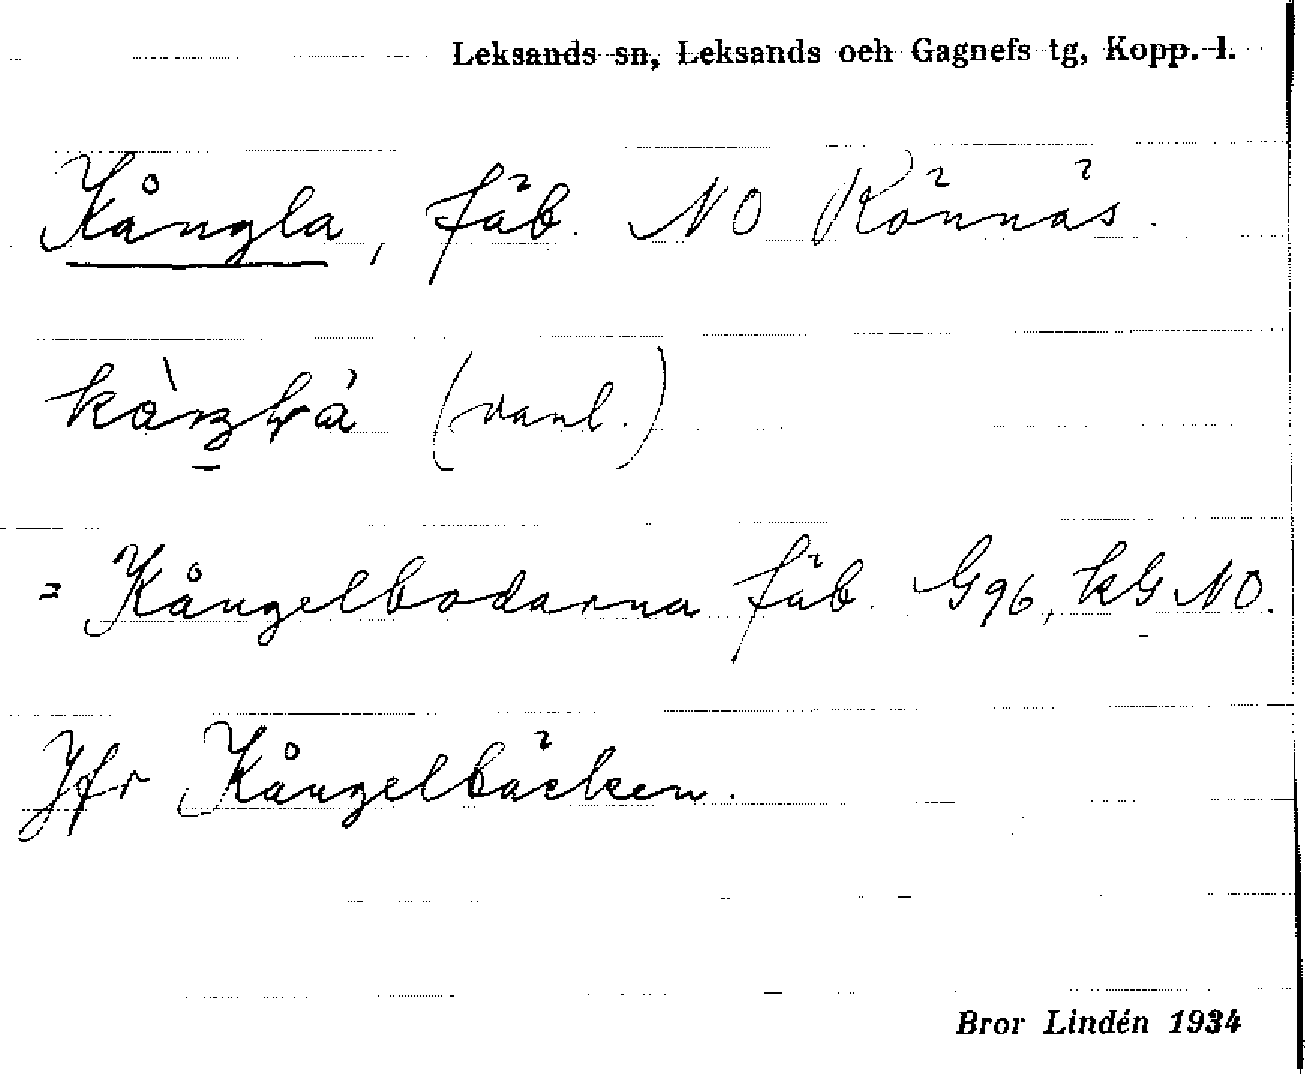 Leksands sn, Leksands och Gagnefs tg, Kopp. l.
Kångla, fäb. NO Rönnäs.
(vanl.)
= Kångelbodarna fäb. G96, kG NO.
Jfr Kångelbäcken.
Bror Lindén 1934